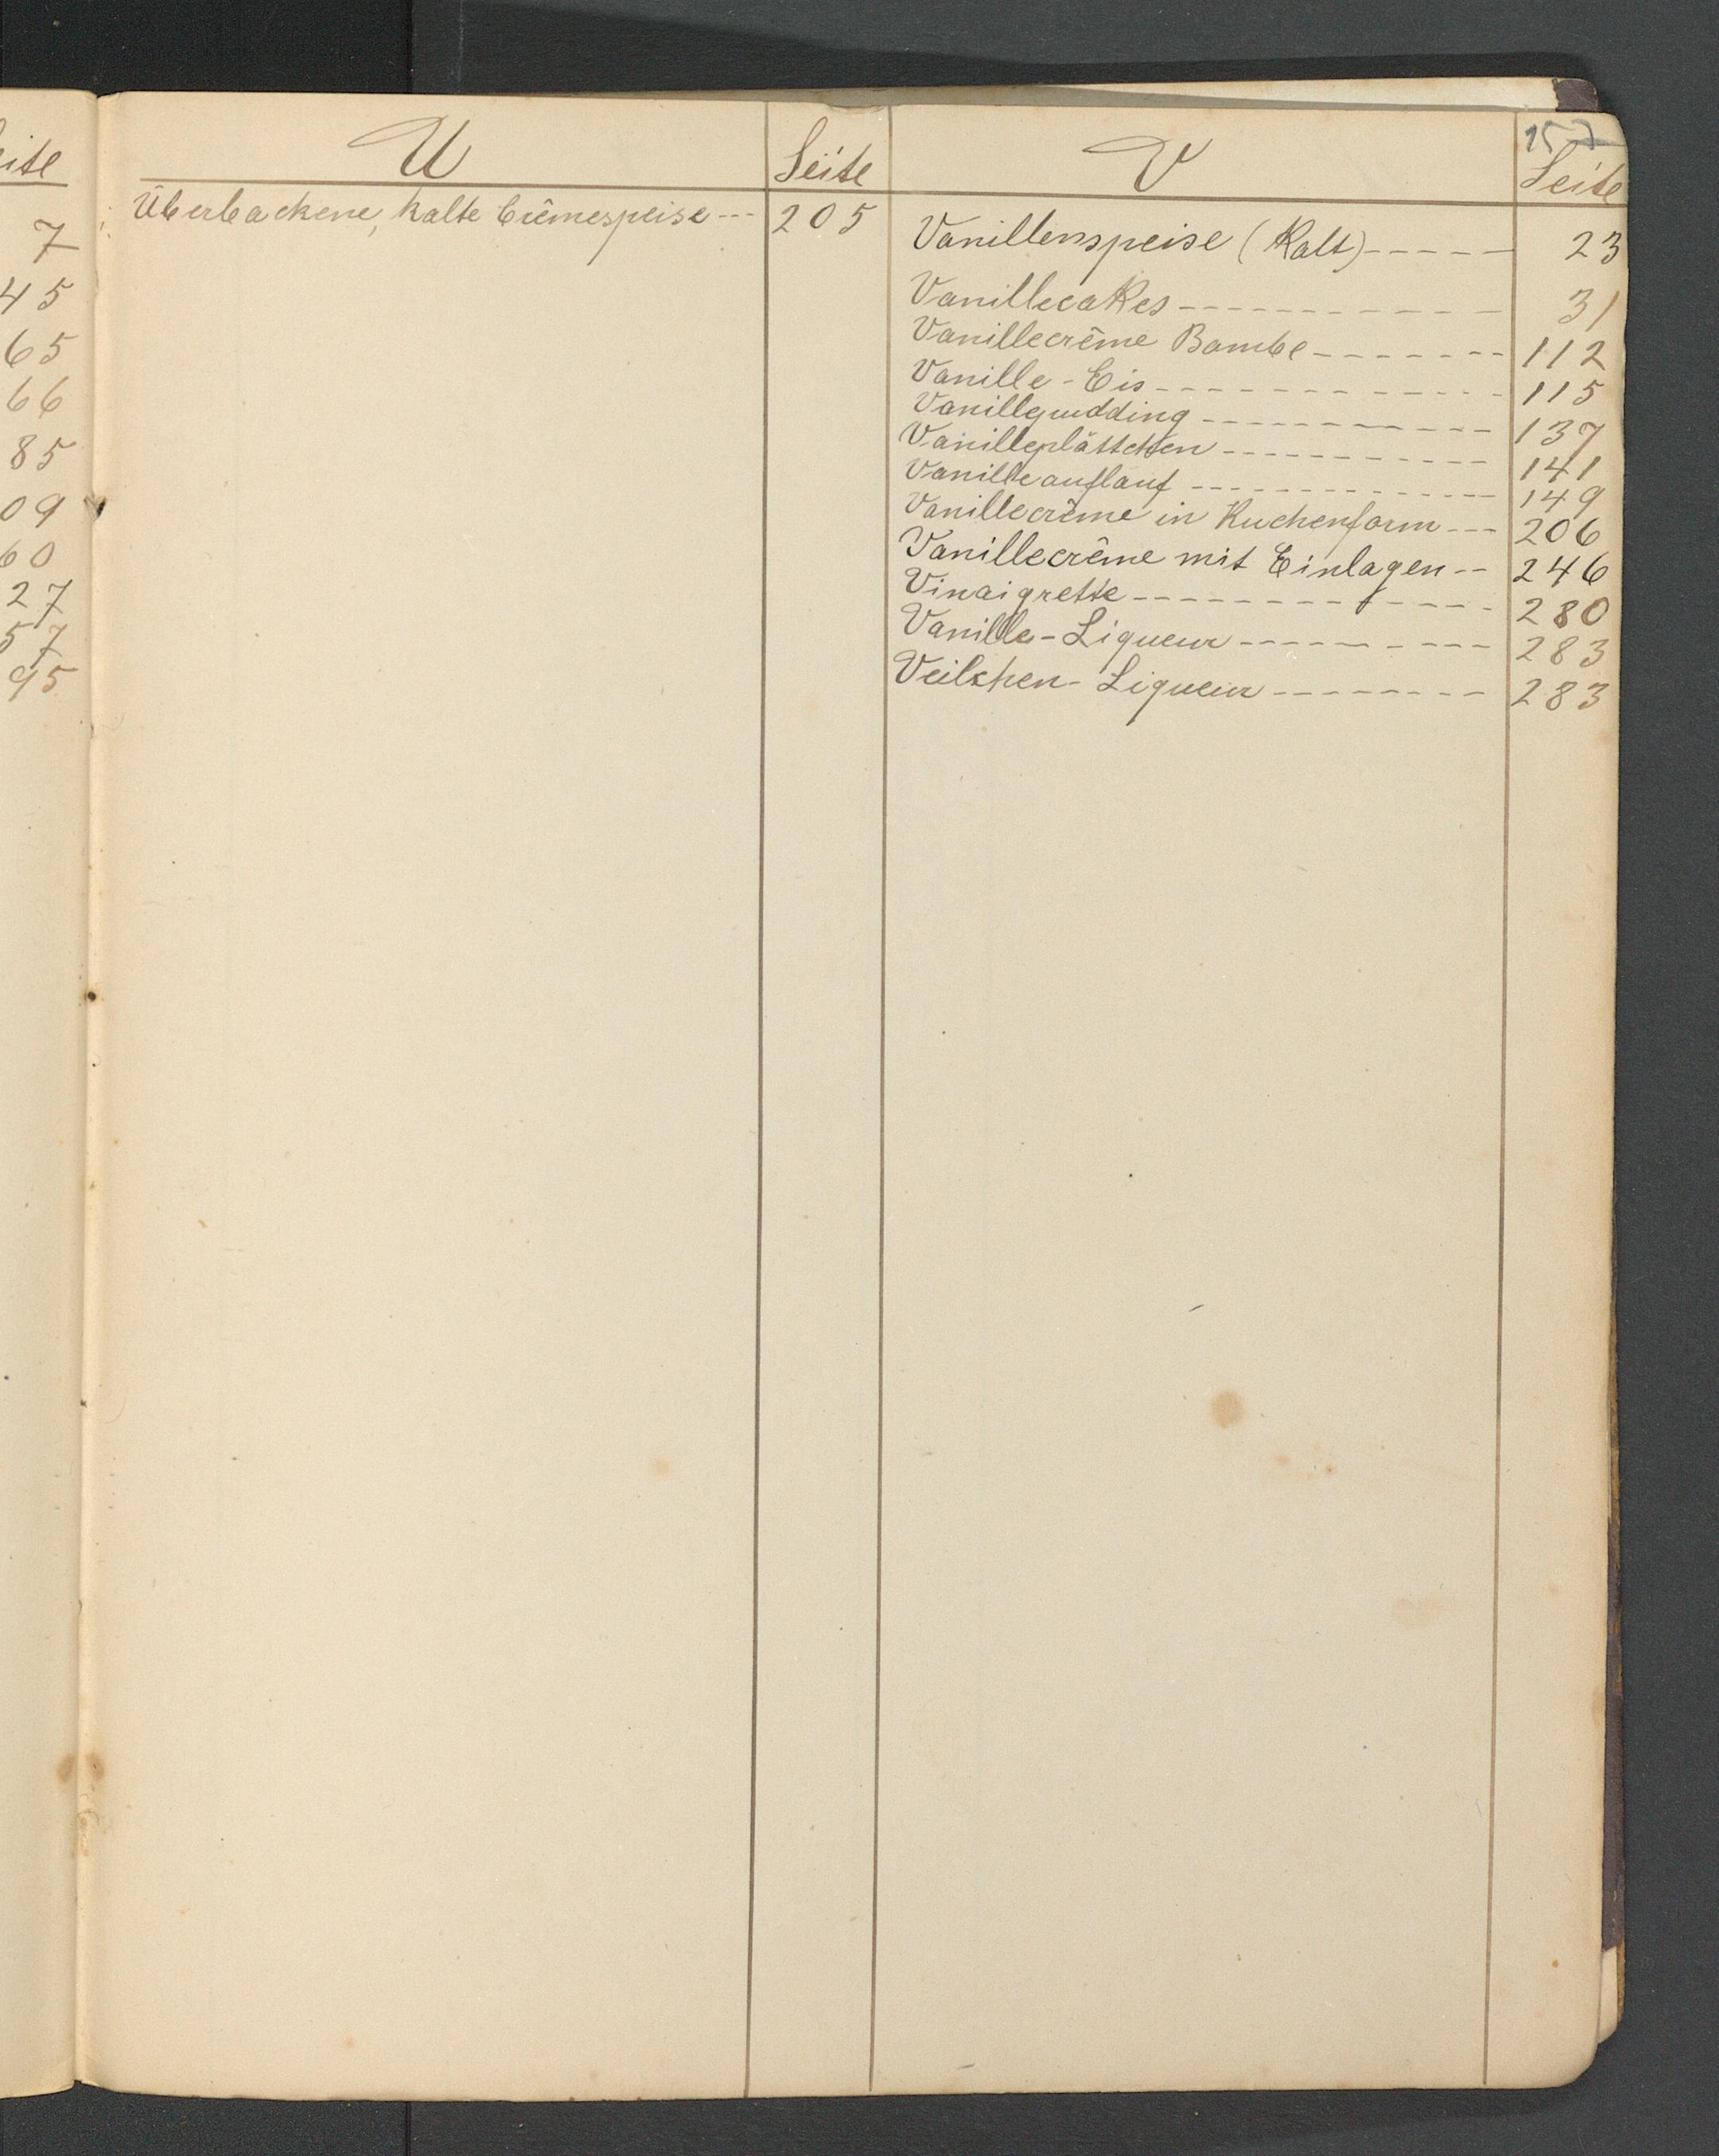 157
U Seite
Überbackene, kalte Crêmespeise --- 205
V Seite
Vanillenspeise (Kalt) ----- 23
Vanillecakes ----------- 31
Vanillecrême Bombe ------- 112
Vanille-Eis ----------- 115
Vanillepudding ----------- 137
Vanilleplättchen ----------- 141
Vanilleauflauf ------------- 149
Vanillecrême in Kuchenform --- 206
Vanillecrême mit Einlagen -- 246
Vinaigrette ------------ 280
Vanille-Liqueur --------- 283
Veilchen-Liqueur -------- 283
eite
7
45
65
66
85
09
60
27
57
95